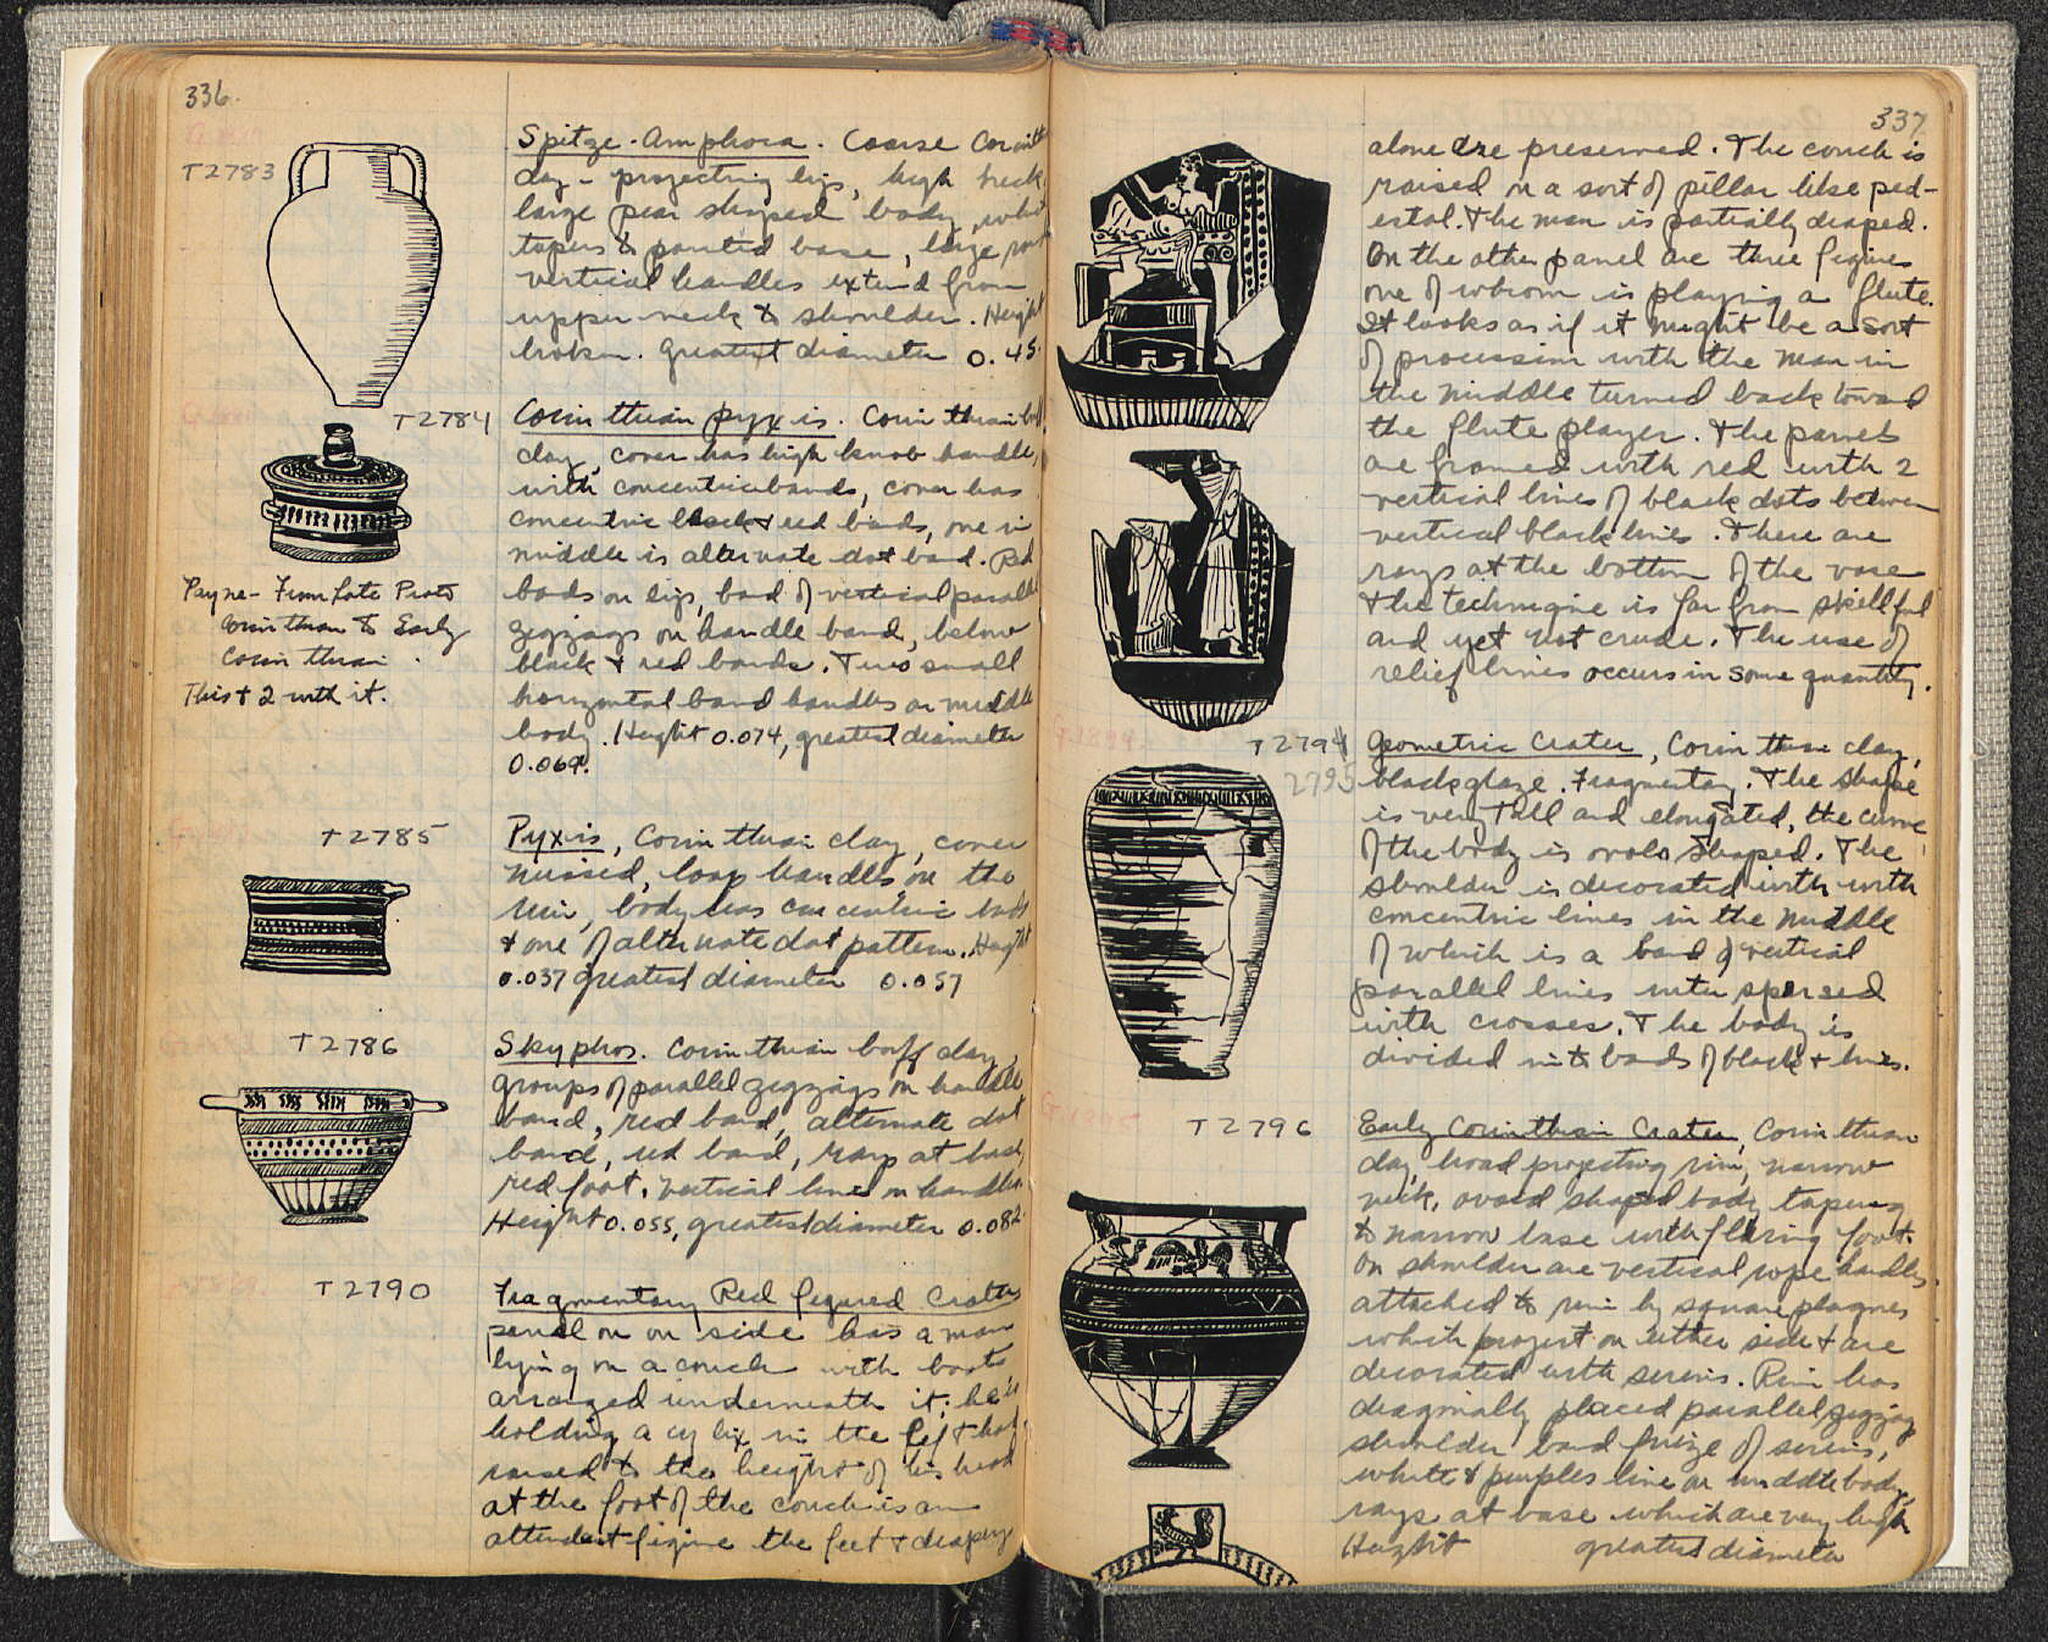 336.
T2783
Spitze-Amphora. Coarse Corinth
clay - projecting lip, high neck,
large pear shaped body, which
tapers to pointed base, large
vertical handles extend from
upper neck to shoulder. Height
broken. Greatest diameter 0.45.
T2784
Corinthian pyxis. Corinthian buff
clay, cover has high knob handle,
with concentric bands, cover has
concentric black & red bands, one in
middle is alternate dot band. Red
bands on lip, band of vertical parallel
zigzags on handle band, below
black & red bands. Two small
horizontal band handles on middle
body. Height 0.074, greatest diameter
0.069.
Payne - From Late Proto
Corinthian to Early
Corinthian.
This & 2 with it.
T2785
Pyxis, Corinthian clay, cover
missed, loop handles on the
rim, body has concentric bands
& one of alternate dot pattern. Height
0.037 greatest diameter 0.057
T2786
Skyphos. Corinthian buff clay,
groups of parallel zigzags on handle
band, red band, alternate dot
band, red band, rays at base,
red foot. Vertical lines on handles.
Height 0.055, greatest diameter 0.082.
T2790
Fragmentary Red figured Crater
panel on on side has a man
lying on a couch with boots
arranged underneath it; he is
holding a cylix in the left hand
raised to the height of his head
at the foot of the couch is an
attendant figure the feet & drapery
337
alone are preserved. The couch is
raised on a sort of pillar like ped-
estal. The man is partially draped.
On the other panel are three figures
one of whom is playing a flute.
It looks as if it might be a sort
of procession with the man in
the middle turned back toward
the flute player. The panels
are framed with red with 2
vertical lines of black dots between
vertical black lines. There are
rays at the bottom of the vase
The technique is far from skillful
and yet not crude. The use of
relief lines occurs in some quantity.
T2794
2795
Geometric Crater, Corinthian clay,
black glaze. Fragmentary. The shape
is very tall and elongated, the curve
of the body is ovolo shaped. The
shoulder is decorated with with
concentric lines in the middle
of which is a band of vertical
parallel lines inter spersed
with crosses. The body is
divided into bands of black & lines.
T2796
Early Corinthian Crater, Corinthian
clay, broad projecting rim, narrow
neck, ovoid shaped body tapering
to narrow base with flaring foot.
On shoulder are vertical rope handles
attached to rim by square plaques
which project on either side & are
decorated with sirens. Rim has
diagonally placed parallel zigzags
shoulder band frieze of sirens,
white & purples line on middle body,
rays at base which are very high
Height greatest diameter